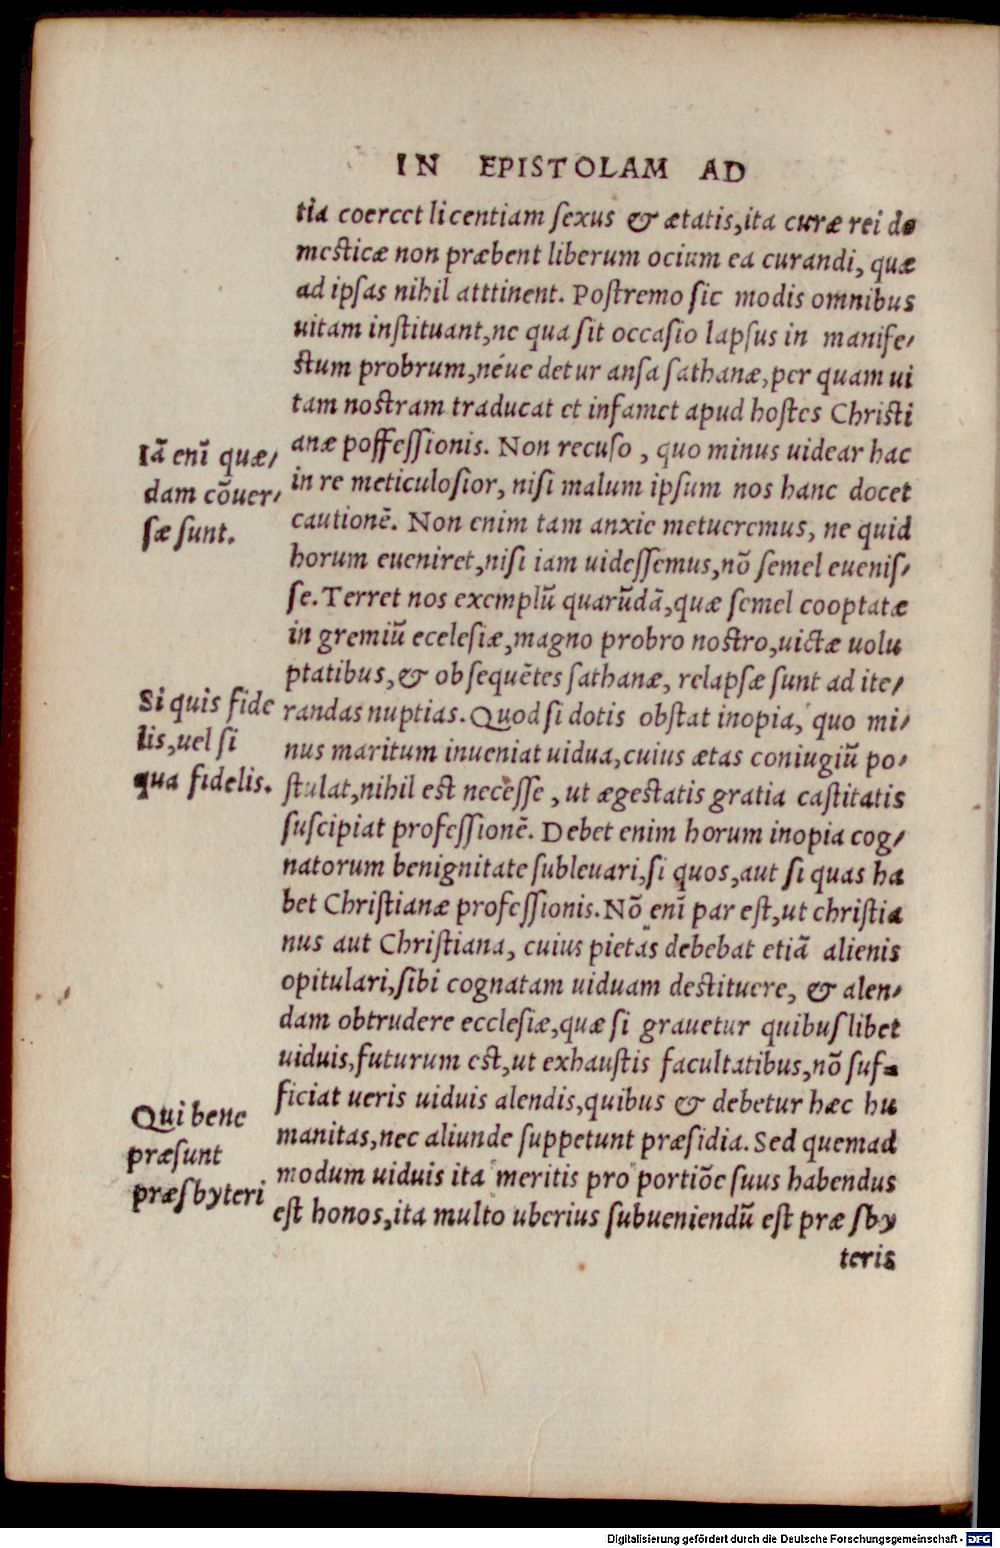 IN EPISTOLAM AD
tia coercet licentiam ſexus & ætatis,ita curæ rei do
meſticæ non præbent liberum ocium ea curandi, quæ
ad ipſas nihil atttinent. Poſtremo ſic modis omnibus
uitam inſtituant,ne qua ſit occaſio lapſus in manife/
ſtum probrum,néue detur anſa ſathanæ,per quam ui
tam noſtram traducat et infamet apud hoſtes Chriſti
anæ poſſeſſionis. Non recuſo , quo minus uidear hac
in re meticuloſior, niſi malum ipſum nos hanc docet
cautionē. Non enim tam anxie metueremus, ne quid
horum eueniret,niſi iam uideſſemus,nō ſemel eueniſ/
ſe. Terret nos exemplū quarūdā,quæ ſemel cooptatæ
in gremiū eceleſiæ,magno probro noſtro,uictæ uolu
ptatibus,& obſequētes ſathanæ, relapſæ ſunt ad ite/
randas nuptias. Quod ſi dotis obſtat inopia, quo mi/
nus maritum inueniat uidua,cuius ætas coniugiū po/
ſtulat,nihil eſt neceſſe , ut ægeſtatis gratia caſtitatis
ſuſcipiat profeſſionē. Debet enim horum inopia cog/
natorum benignitate ſubleuari,ſi quos,aut ſi quas ha
bet Chriſtianæ profeſſionis. Nō enī par eſt,ut chriſtia
nus aut Chriſtiana, cuius pietas debebat etiā alienis
opitulari,ſibi cognatam uiduam deſtituere, & alen/
dam obtrudere eccleſiæ,quæ ſi grauetur quibuſlibet
uiduis,futurum eſt,ut exhauſtis facultatibus,nō ſuf=
ficiat ueris uiduis alendis,quibus & debetur hæc hu
manitas,nec aliunde ſuppetunt præſidia. Sed quemad
modum uiduis ita meritis pro portiōe ſuus habendus
eſt honos,ita multo uberius ſubueniendū eſt præ ſby
teris
Iā enī quæ/
dam cōuer/
ſæ ſunt.
Si quis fide
lis,uel ſi
qua fidelis.
Qui bene
præſunt
præſbyteri
Digitalisierung gefördert durch die Deutsche Forschungsgemeinschaft - DFG